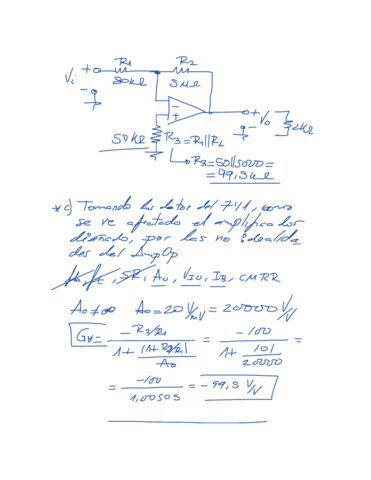 R1 R2
Vi + 50kΩ 5MΩ
-
-
+ + Vo
50kΩ R3=R1||R2 - 2kΩ
R3=50||5000=
= 49,5kΩ
*c) Tomando los datos del 741, como
se ve afectado el amplificador
diseñado, por las no idealida
des del AmpOp
SR, Ao, VIO, IB, CMRR
Ao≠∞ Ao=20 V/mV = 20000 V/V
Gv= -R2/R1 / 1+ (1+R2/R1)/Ao = -100 / 1+ 101/20000 =
= -100 / 1,00505 = -99,5 V/V